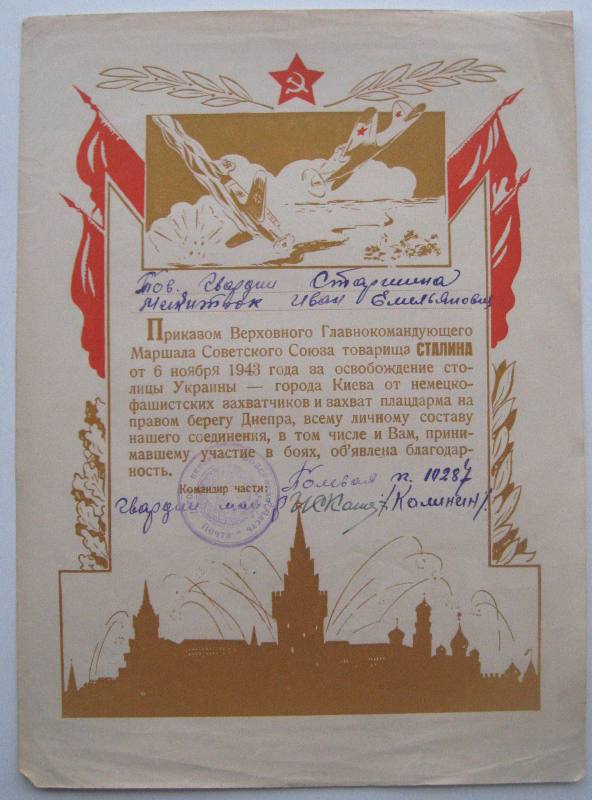 Тов. Гвардии Старшина
Никитюк Иван Емельянович
Приказом Верховного Главнокомандующего
Маршала Советского Союза товарища СТАЛИНА
от 6 ноября 1943 года за освобождение сто-
лицы Украины — города Киева от немецко-
фашистских захватчиков и захват плацдарма на
правом берегу Днепра, всему личному составу
нашего соединения, в том числе и Вам, прини-
мавшему участие в боях, об'явлена благодар-
ность.
Командир части: Полевая п. 10287
гвардии майор /Калинин/